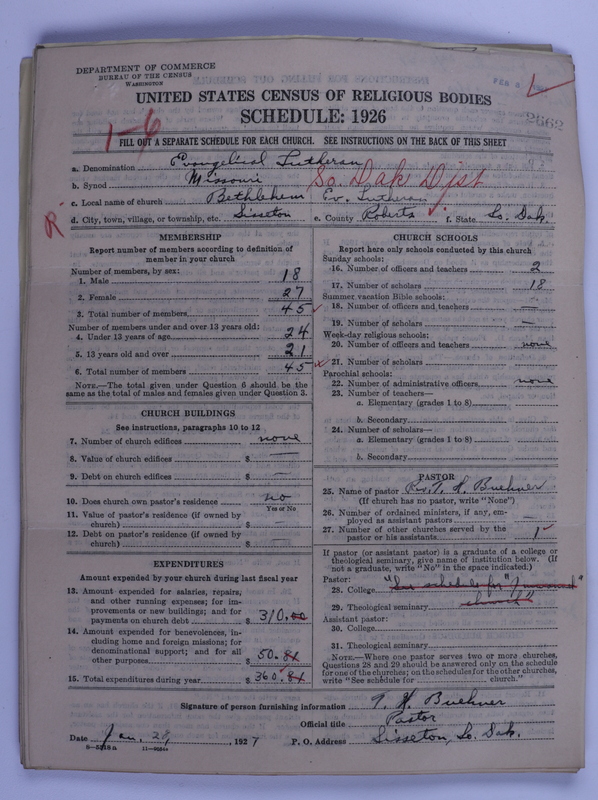 DEPARTMENT OF COMMERCE
BUREAU OF THE CENSUS
WASHINGTON
UNITED STATES CENSUS OF RELIGIOUS BODIES
SCHEDULE: 1926
2662
1-6
FILL OUT A SEPARATE SCHEDULE FOR EACH CHURCH. SEE INSTRUCTIONS ON THE BACK OF THIS SHEET
a. Denomination Evangelical Lutheran
b. Synod Missouri So. Dak Dist
c. Local name of church Bethlehem Ev. Lutheran
R
d. City, town, village, or township, etc. Sisseton e. County Roberts f. State So. Dak.
MEMBERSHIP
Report number of members according to definition of
member in your church
Number of members, by sex:
1. Male 18
2. Female 27
3. Total number of members 45
Number of members under and over 13 years old:
4. Under 13 years of age 24
5. 13 years old and over 21
6. Total number of members 45
NOTE.—The total given under Question 6 should be the
same as the total of males and females given under Question 3.
CHURCH BUILDINGS
See instructions, paragraphs 10 to 12
7. Number of church edifices none
8. Value of church edifices $ —
9. Debt on church edifices $ —
10. Does church own pastor's residence no
Yes or No
11. Value of pastor's residence (if owned by
church) $ —
12. Debt on pastor's residence (if owned by
church) $ —
EXPENDITURES
Amount expended by your church during last fiscal year
13. Amount expended for salaries, repairs,
and other running expenses; for im-
provements or new building; and for
payments on church debt $ 310.00
14. Amount expended for benevolences, in-
cluding home and foreign missions; for
denominational support; and for all
other purposes $ 50.81
15. Total expenditures during year $ 360.81
CHURCH SCHOOLS
Report here only schools conducted by this church
Sunday schools:
16. Number of officers and teachers 2
17. Number of scholars 18
Summer vacation Bible schools:
18. Number of officers and teachers —
19. Number of scholars —
Week-day religious schools:
20. Number of officers and teachers none
21. Number of scholars —
Parochial schools:
22. Number of administrative officers none
23. Number of teachers—
a. Elementary (grades 1 to 8)
b. Secondary
24. Number of scholars—
a. Elementary (grades 1 to 8)
b. Secondary
PASTOR
25. Name of pastor Rev. T. H. Buehner
(If church has no pastor, write "None")
26. Number of ordained ministers, if any, em-
ployed as assistant pastors —
27. Number of other churches served by the
pastor or his assistants 1
If pastor (or assistant pastor) is a graduate of a college or
theological seminary, give name of institution below. (If
not a graduate, write "No" in the space indicated.)
Pastor:
28. College "See schedule for "
29. Theological seminary church"
Assistant pastor:
30. College
31. Theological seminary
NOTE.—Where one pastor serves two or more churches,
Questions 28 and 29 should be answered only on the schedule
for one of the churches; on the schedules for the other churches,
write "See schedule for church."
Signature of person furnishing information T. H. Buehner
Official title Pastor
Date Jan. 28, 1927 P. O. Address Sisseton, So. Dak.